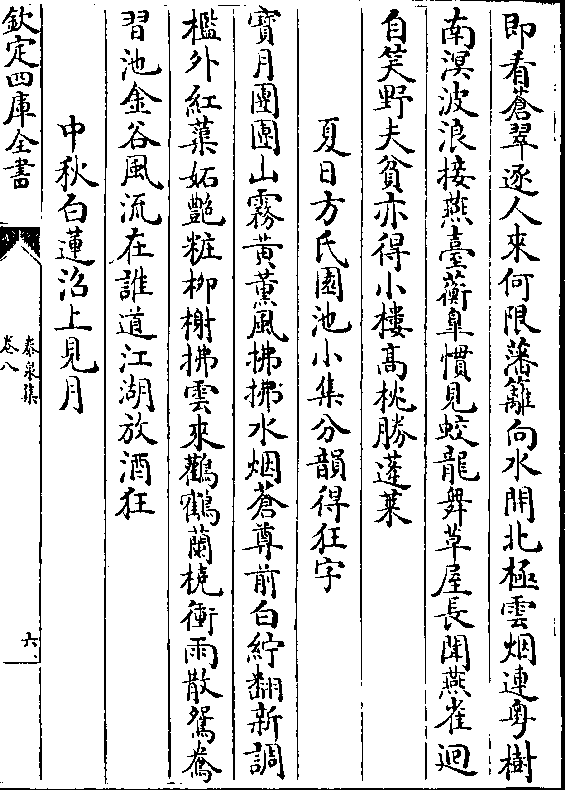 即看蒼翠逐人來何限藩籬向水開北極雲烟連粤樹
南溟波浪接燕臺蘅臯慣見蛟龍舞草屋長聞燕雀迴
自笑野夫貧亦得小樓髙枕勝蓬萊
夏日方氏園池小集分韻得狂字
寳月團團山霧黄薫風拂拂水烟蒼尊前白紵翻新調
檻外紅蕖妬艷粧柳榭拂雲來鸛鶴蘭橈衝雨散鴛鴦
習池金谷風流在誰道江湖放酒狂
中秋白蓮沼上見月
欽定四庫全書
泰泉集
卷八
六